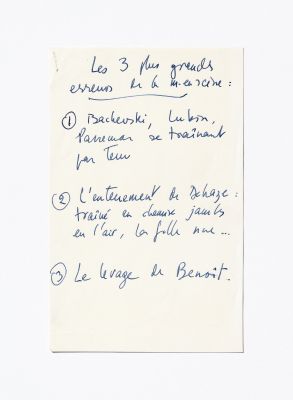 Les 3 plus grands
erreurs de la m. en scène :
① Bachevski, Lubin,
se traînant
par Terre
② L'enterrement de :
traîné en chemise jambes
en l'air, la fille nue ...
③ Le levage de Benoît.